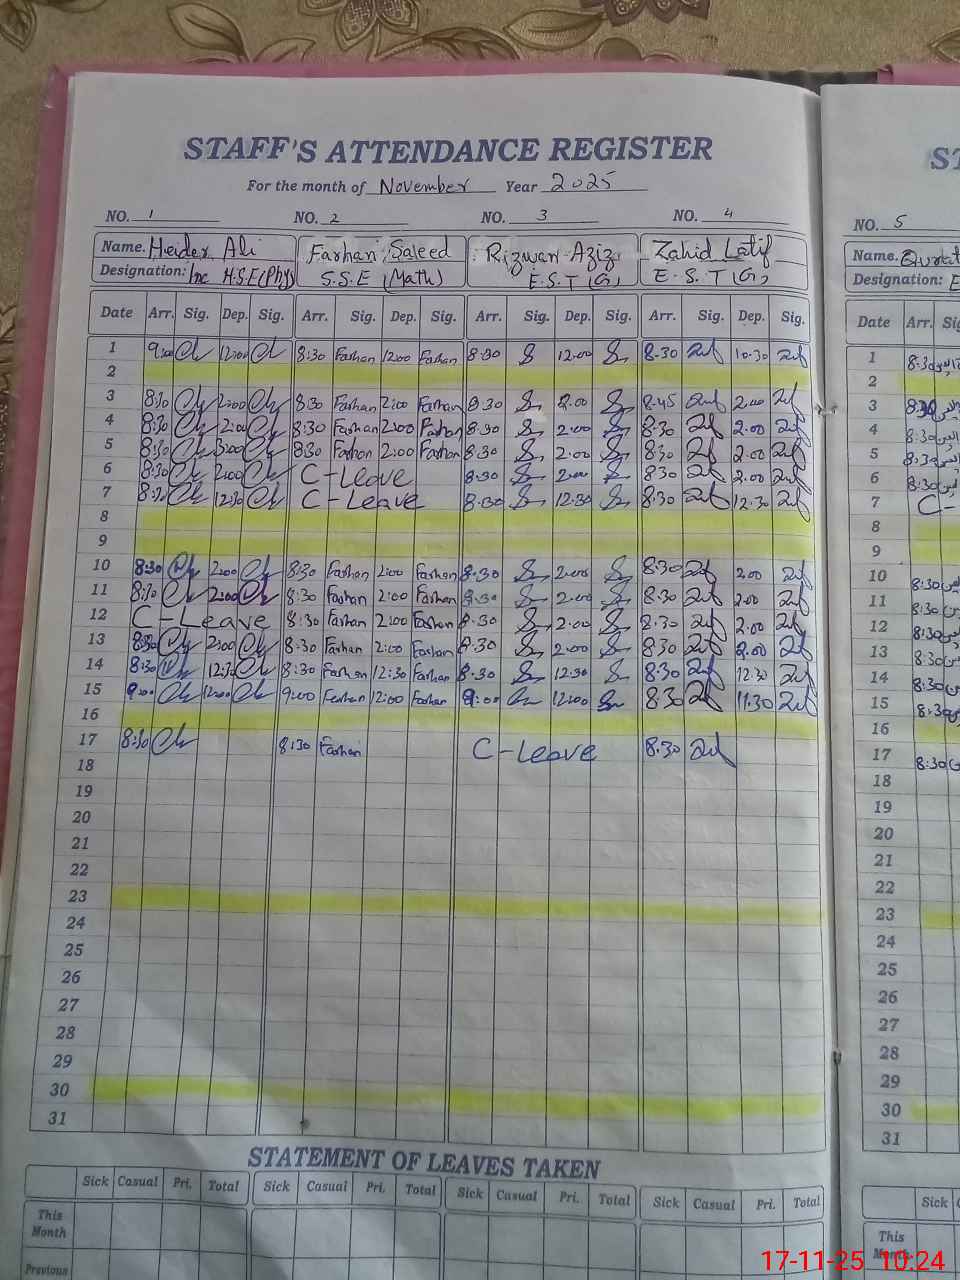 STAFF'S ATTENDANCE REGISTER
For the month of November Year 2025
NO. 1 NO. 2 NO. 3 NO. 4
Name. Heider Ali Farhan Saleed Rizwan Aziz Zahid Latif
Designation: Inc H.S.E(Phy) S.S.E (Math) E.S.T (G) E.S.T (G)
Date Arr. Sig. Dep. Sig. Arr. Sig. Dep. Sig. Arr. Sig. Dep. Sig. Arr. Sig. Dep. Sig.
1 9:00 12:00 8:30 Farhan 12:00 Farhan 8:30 12.00 8.30 10.30
2
3 8:30 2:00 8:30 Farhan 2:00 Farhan 8.30 2.00 8.45 2.00
4 8:30 2:00 8:30 Farhan 2:00 Farhan 8.30 2.00 8.30 2.00
5 8:30 8:30 Farhan 2:00 Farhan 8.30 2.00 8.30 2.00
6 8:30 2:00 C-Leave 8.30 2.00 8.30 2.00
7 8:30 12:30 C-Leave 8.30 12.30 8.30 12.30
8
9
10 8:30 2:00 8:30 Farhan 2:00 Farhan 8.30 2.00 8.30 2.00
11 8:30 2:00 8:30 Farhan 2:00 Farhan 8.30 2.00 8.30 2.00
12 C-Leave 8:30 Farhan 2:00 Farhan 8.30 2.00 8.30 2.00
13 8:30 2:00 8:30 Farhan 2:00 Farhan 8.30 2.00 8.30 2.00
14 8:30 12:30 8:30 Farhan 12:30 Farhan 8.30 12.30 8.30 12.30
15 9:00 12:00 9:00 Farhan 12:00 Farhan 9:00 12:00 8.30 11.30
16
17 8:30 8:30 Farhan C-Leave 8.30
18
19
20
21
22
23
24
25
26
27
28
29
30
31
STATEMENT OF LEAVES TAKEN
Sick Casual Pri. Total Sick Casual Pri. Total Sick Casual Pri. Total Sick Casual Pri. Total
This Month
Previous
ST
NO. 5
Name.
Designation: E
Date Arr. Sig
1 8:30
2
3 8:30
4 8:30
5 8:30
6 8:30
7 C-
8
9
10 8:30
11 8:30
12 8:30
13 8:30
14 8:30
15 8:30
16
17 8:30
18
19
20
21
22
23
24
25
26
27
28
29
30
31
Sick
This
17-11-25 10:24